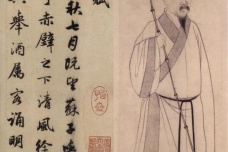 賦
秋七月既望蘇子
赤壁之下清風徐
舉酒屬客誦明